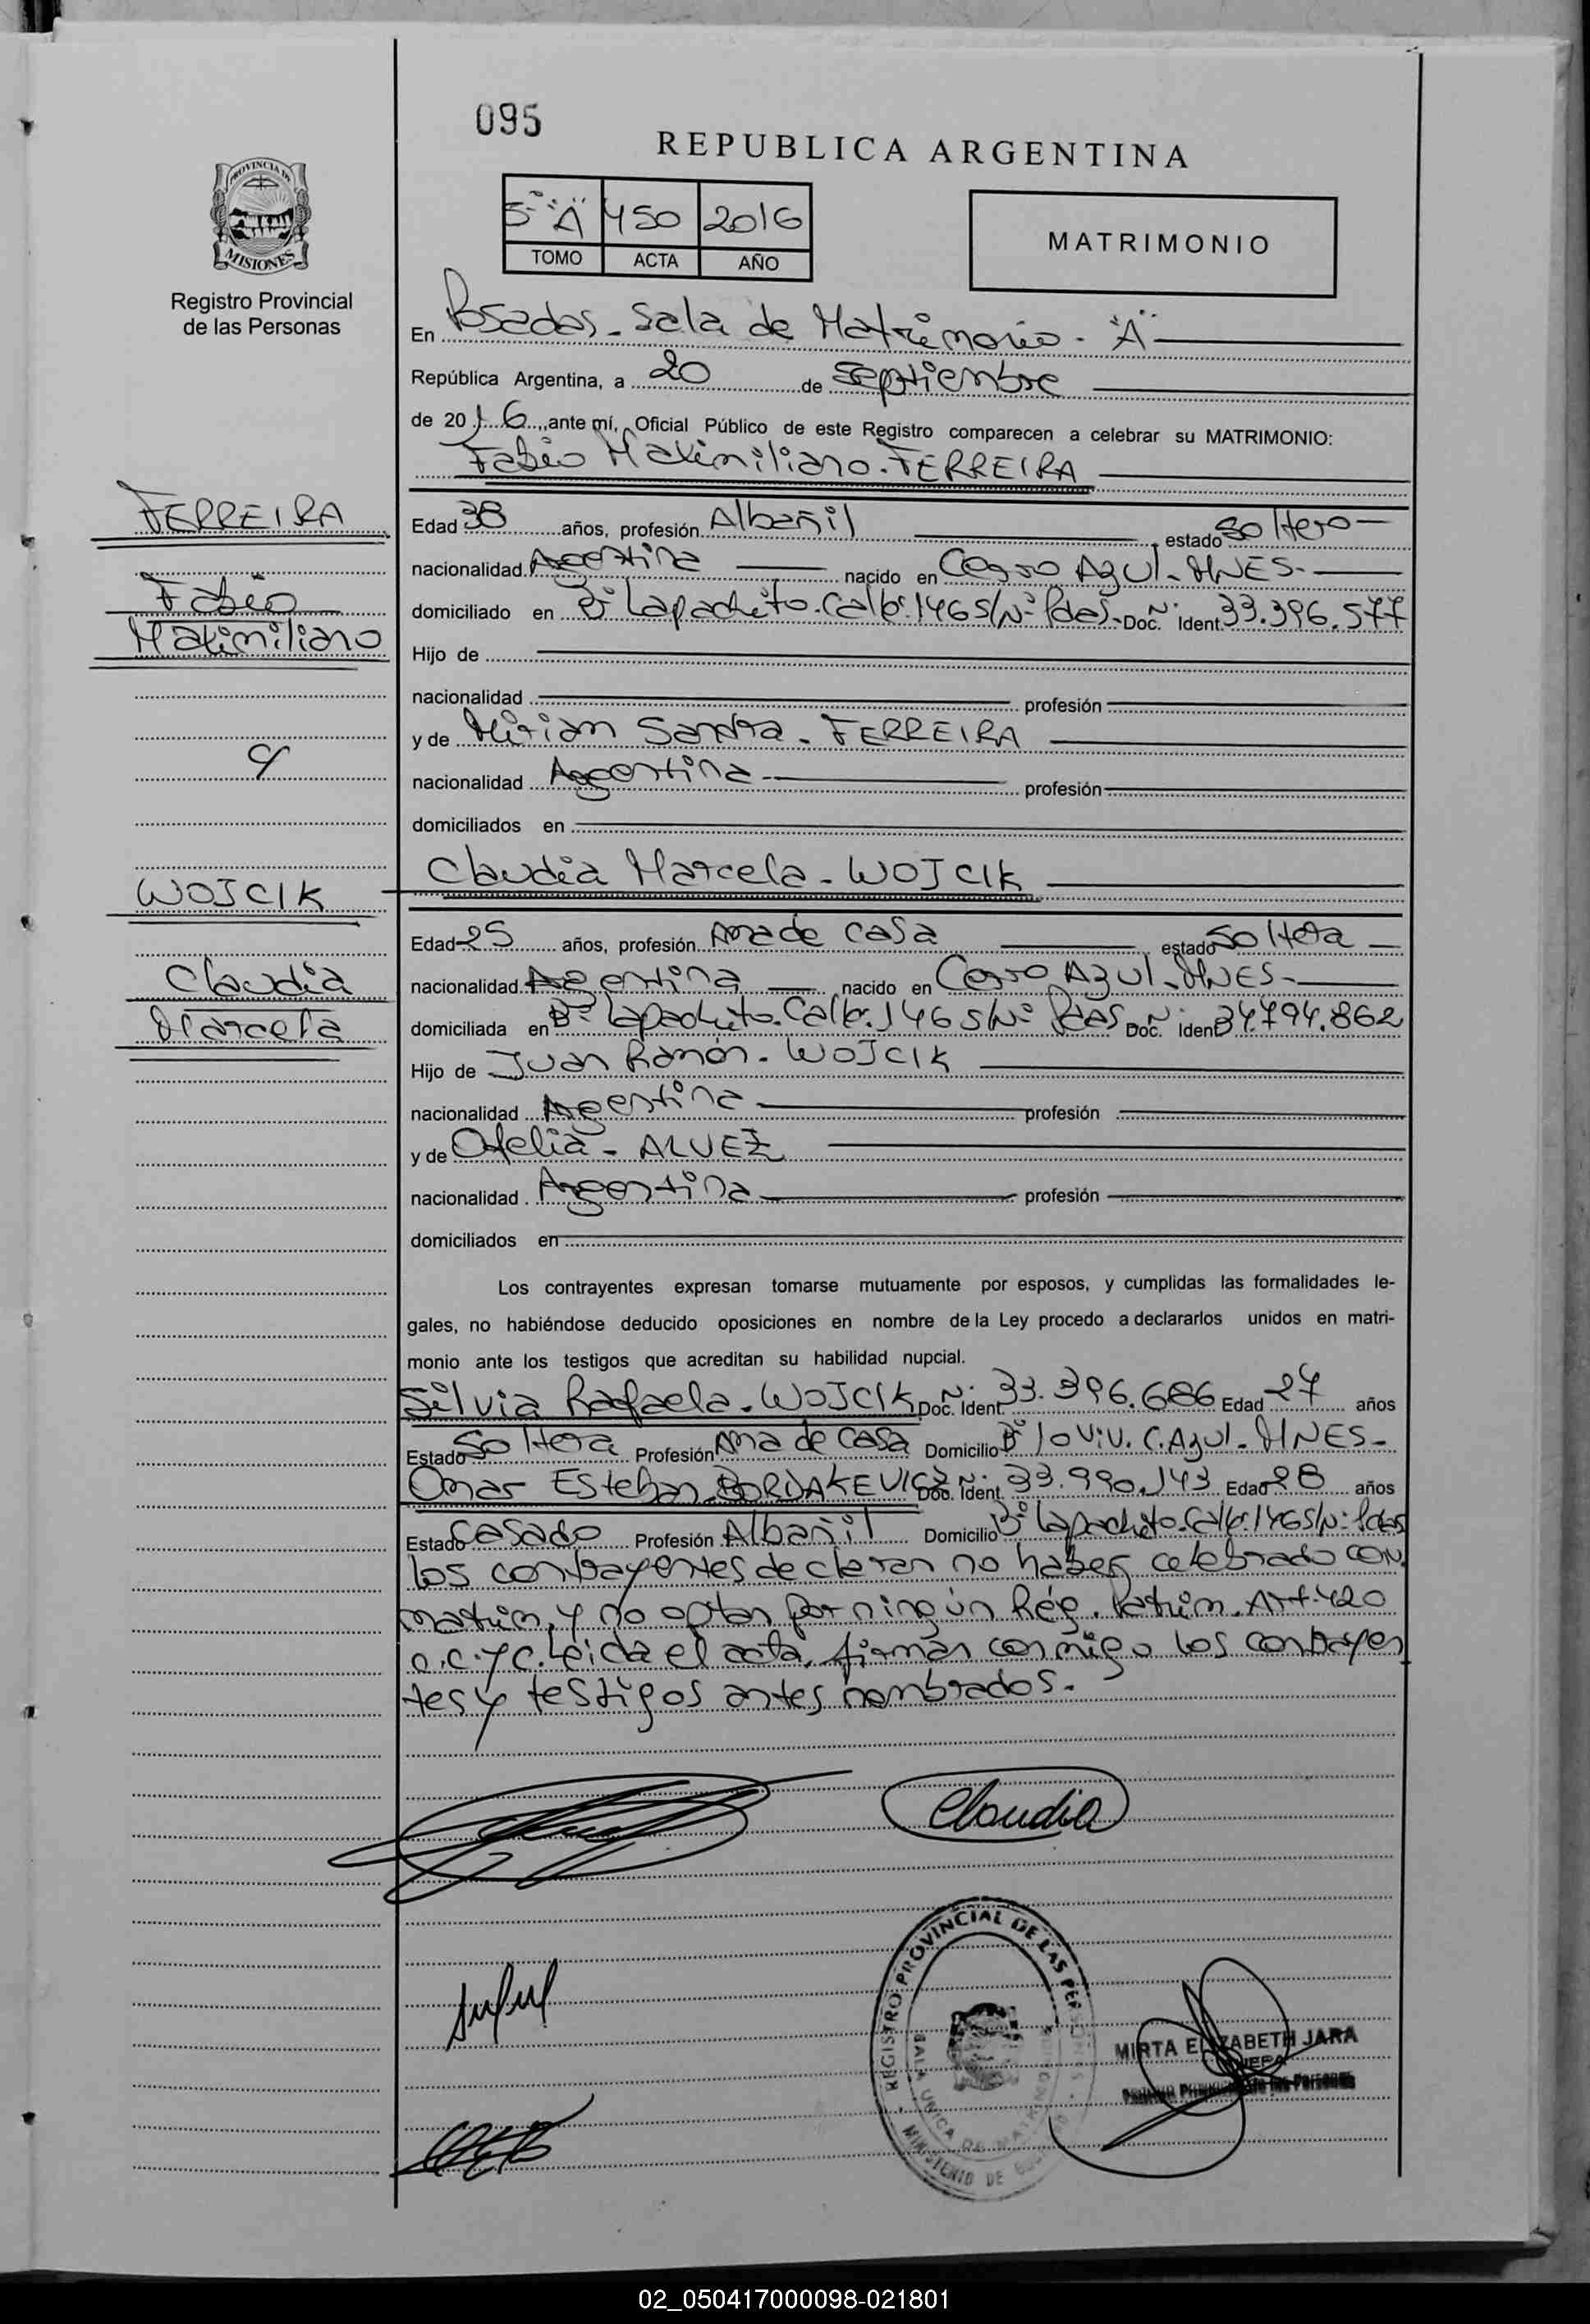 095
REPUBLICA ARGENTINA
PROVINCIA DE
MISIONES
Registro Provincial
de las Personas
5º "A" 450 2016
TOMO ACTA AÑO
MATRIMONIO
En Posadas - Sala de Matrimonio - "A"
República Argentina, a 20 de septiembre
de 2016, ante mí, Oficial Público de este Registro comparecen a celebrar su MATRIMONIO:
Fabio Maximiliano - FERREIRA
FERREIRA
Fabio
Maximiliano
Edad 38 años, profesión Albañil estado soltero
nacionalidad Argentina nacido en Cerro Azul - MNES-
domiciliado en Bº Lapachito. Calle. 146 S/Nº Pdas. Doc. Nº Ident. 33.396.577
Hijo de
nacionalidad profesión
y de Mirian Sandra - FERREIRA
y
nacionalidad Argentina - profesión
domiciliados en
Claudia Marcela - WOJCIK
WOJCIK
Claudia
Marcela
Edad 25 años, profesión Ama de casa estado soltera
nacionalidad Argentina nacido en Cerro Azul - MNES-
domiciliada en Bº Lapachito. Calle. 146 S/Nº Pdas Doc. Nº Ident 34.794.862
Hijo de Juan Ramón - WOJCIK
nacionalidad Argentina profesión
y de Ofelia - ALVEZ
nacionalidad Argentina profesión
domiciliados en
Los contrayentes expresan tomarse mutuamente por esposos, y cumplidas las formalidades le-
gales, no habiéndose deducido oposiciones en nombre de la Ley procedo a declararlos unidos en matri-
monio ante los testigos que acreditan su habilidad nupcial.
Silvia Rafaela - WOJCIK Doc. Nº Ident 33.396.686 Edad 27 años
Estado soltera Profesión Ama de casa Domicilio Bº 10 Viv. C. Azul - MNES-
Omar Esteban BORDAKEVICZ Doc. Nº Ident. 33.990.143 Edad 28 años
Estado casado Profesión Albañil Domicilio Bº Lapachito. Calle. 146 S/Nº Pdas
los contrayentes declaran no haber celebrado con.
matrim. y no optan por ningún Rég. Patrim. Art. 420
c.c. y c. Leída el acta, firman conmigo los contrayen
tes y testigos antes nombrados.
Claudia
REGISTRO PROVINCIAL DE LAS PERSONAS
MIRTA ELIZABETH JARA
JEFA
02_050417000098-021801